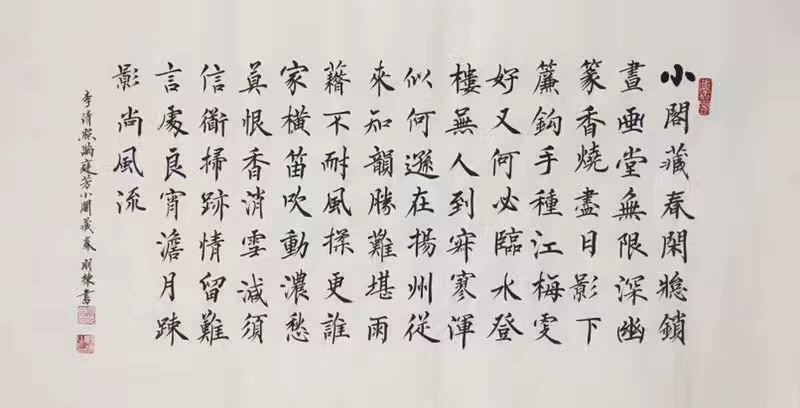 小閣藏春閑窓鎖
晝畫堂無限深幽
篆香燒盡日影下
簾鈎手種江梅雯
好又何必臨水登
樓無人到寂寥渾
似何遜在揚州從
來知韻勝難堪雨
藉不耐風揉更誰
家橫笛吹動濃愁
莫恨香消雪減須
信衜掃跡情留難
言處良宵澹月疎
影尚風流
李清照滿庭芳小閣藏春 書